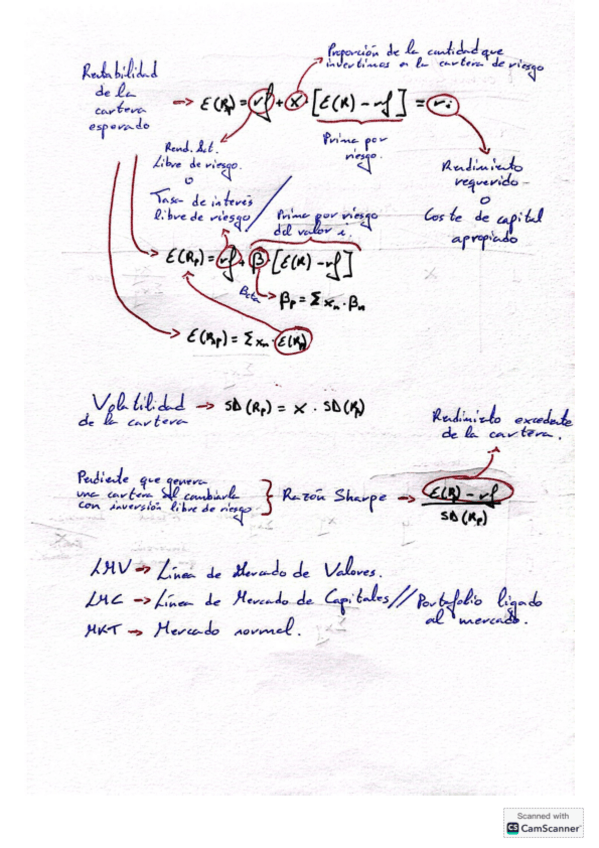 Proporción de la cantidad que
invertimos en la cartera de riesgo
Rentabilidad
de la
cartera
esperado
E(Rp) = rf + x · [E(R) - rf] = ri
Rend. Act.
Libre de riesgo.
o
Tasa de interés
libre de riesgo
Prima por
riesgo.
Rendimiento
requerido
o
Coste de capital
apropiado
Prima por riesgo
del valor i.
E(Rp) = rf + β · [E(R) - rf]
Beta
βp = Σ xn · βn
E(Rxp) = Σ xn · E(Rp)
Volatilidad
de la cartera
SD(Rp) = x · SD(Rp)
Rendimiento excedente
de la cartera.
Pendiente que genera
una cartera al combinarla
con inversión libre de riesgo
Razón Sharpe
E(R) - rf
SD(Rp)
LMV → Línea de Mercado de Valores.
LMC → Línea de Mercado de Capitales // Portafolio ligado
al mercado.
MKT → Mercado normal.
Scanned with
CS CamScanner